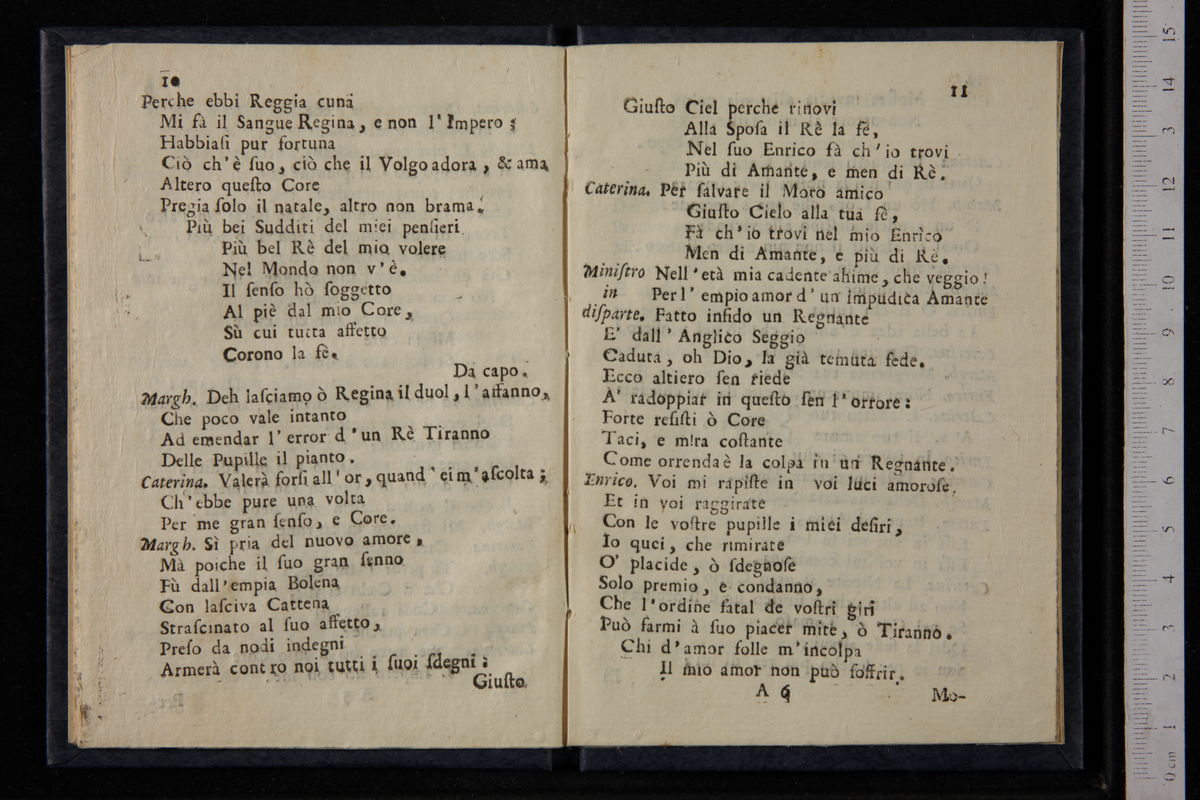 10
Perche ebbi Reggia cuna
Mi fà il Sangue Regina, e non l'Impero;
Habbiaſi pur fortuna
Ciò ch'è ſuo, ciò che il Volgo adora, & ama,
Altero queſto Core
Pregia ſolo il natale, altro non brama.
Più bei Sudditi del miei penſieri
Più bel Rè del mio volere
Nel Mondo non v'è.
Il ſenſo hò ſoggetto
Al piè dal mio Core,
Sù cui tutta affetto
Corono la fè.
Da capo.
Margh. Deh laſciamo ò Regina il duol, l'affanno,
Che poco vale intanto
Ad emendar l'error d'un Rè Tiranno
Delle Pupille il pianto.
Caterina. Valerà forſi all'or, quand'ei m'aſcolta;
Ch'ebbe pure una volta
Per me gran ſenſo, e Core.
Margh. Sì pria del nuovo amore,
Mà poiche il ſuo gran ſenno
Fù dall'empia Bolena
Con laſciva Cattena
Straſcinato al ſuo affetto,
Preſo da nodi indegni
Armerà contro noi tutti i ſuoi ſdegni:
Giuſto
11
Giuſto Ciel perche rinovi
Alla Spoſa il Rè la fè,
Nel ſuo Enrico fà ch'io trovi
Più di Amante, e men di Rè.
Caterina. Per ſalvare il Moro amico
Giuſto Cielo alla tua fè,
Fà ch'io trovi nel mio Enrico
Men di Amante, e più di Rè.
Miniſtro Nell'età mia cadente ahime, che veggio!
in Per l'empio amor d'un impudica Amante
diſparte. Fatto infido un Regnante
E' dall'Anglico Seggio
Caduta, oh Dio, la già temuta fede.
Ecco altiero ſen riede
A' radoppiar in queſto ſen l'orrore:
Forte reſiſti ò Core
Taci, e mira coſtante
Come orrenda è la colpa in un Regnante.
Enrico. Voi mi rapiſte in voi luci amoroſe,
Et in voi raggirate
Con le voſtre pupille i miei deſiri,
Io quei, che rimirate
O' placide, ò ſdegnoſe
Solo premio, e condanno,
Che l'ordine fatal de voſtri giri
Può farmi à ſuo piacer mite, ò Tiranno.
Chi d'amor folle m'incolpa
Il mio amor non può ſoffrir.
A 6
Mo-
0 cm 1 2 3 4 5 6 7 8 9 10 11 12 13 14 15